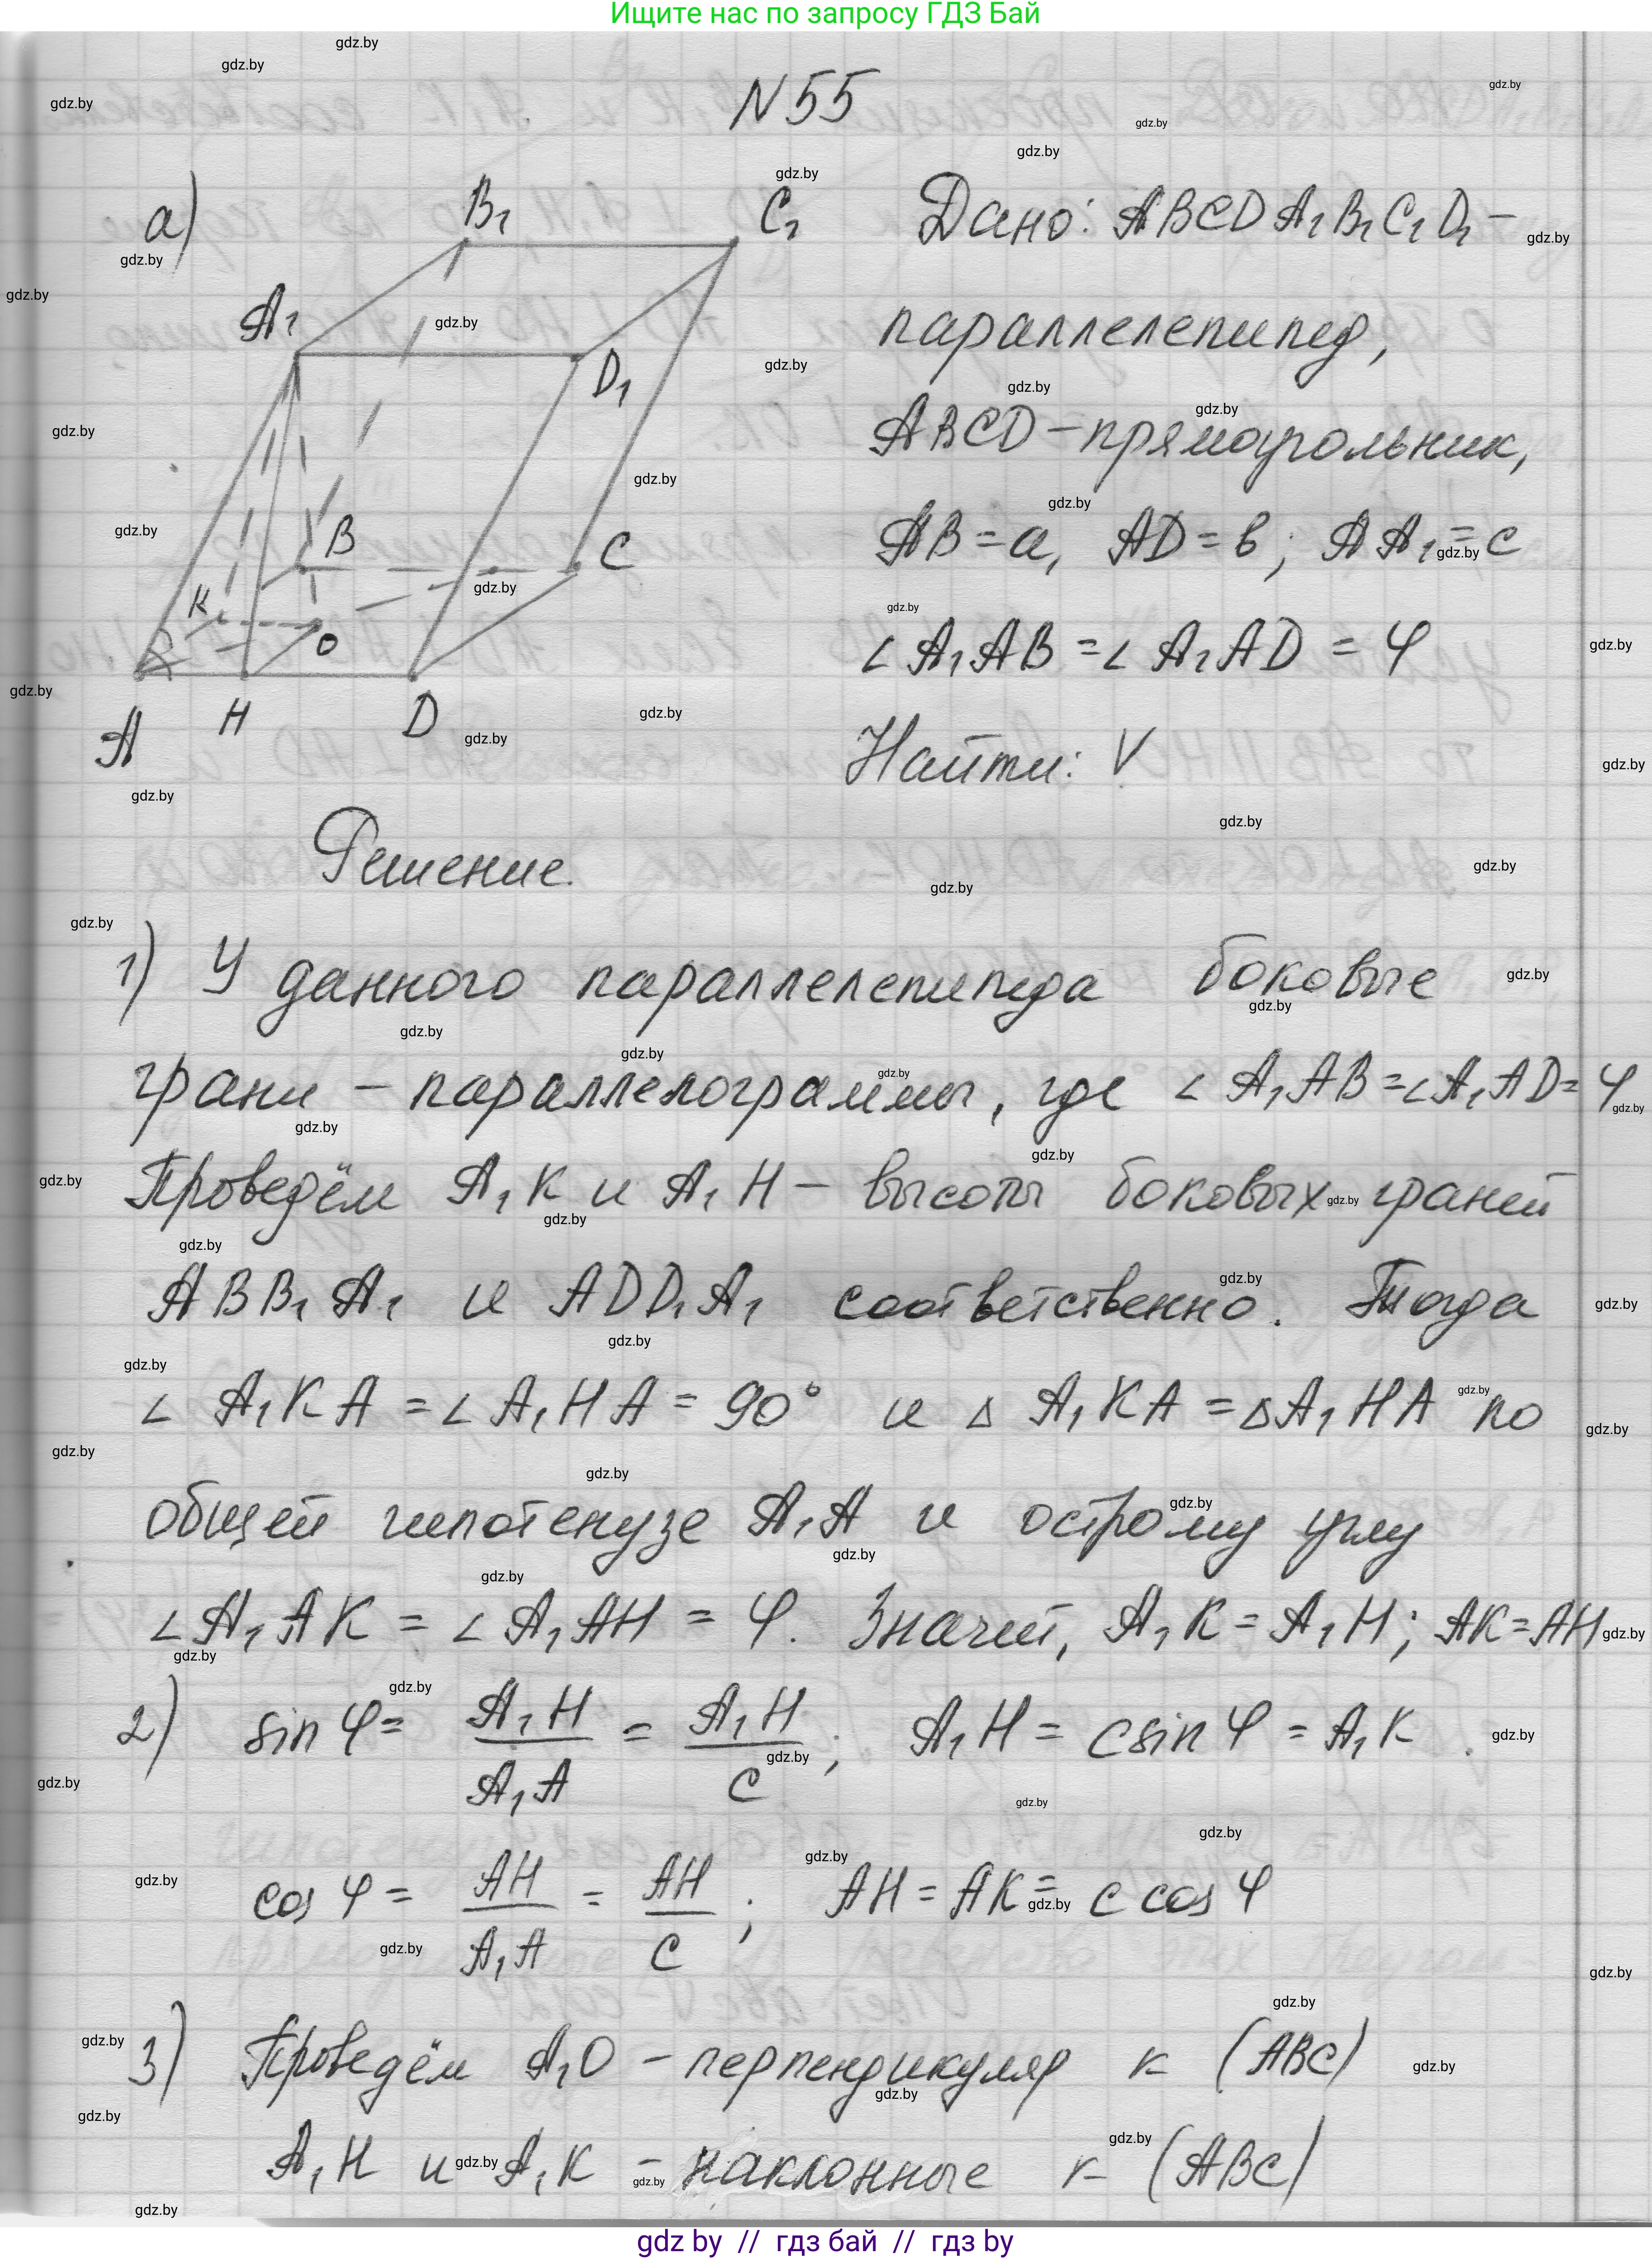 Ищите нас по запросу ГДЗ Бай
N 55
а)
B₁
C₁
A₁
D₁
B
C
K
O
A
H
D
Дано: ABCDA₁B₁C₁D₁ –
параллелепипед,
ABCD – прямоугольник,
AB = a, AD = в; AA₁ = c
∠ A₁AB = ∠ A₁AD = φ
Найти: V
Решение.
1) У данного параллелепипеда боковые
грани – параллелограммы, где ∠ A₁AB = ∠ A₁AD = φ
Проведём A₁K и A₁H – высоты боковых граней
ABB₁A₁ и ADD₁A₁ соответственно. Тогда
∠ A₁KA = ∠ A₁HA = 90° и △ A₁KA = △ A₁HA по
общей гипотенузе A₁A и острому углу
∠ A₁AK = ∠ A₁AH = φ. Значит, A₁K = A₁H; AK = AH
2) sin φ = A₁H / A₁A = A₁H / c ; A₁H = c sin φ = A₁K .
cos φ = AH / A₁A = AH / c ; AH = AK = c cos φ
3) Проведём A₁O – перпендикуляр к (ABC)
A₁H и A₁K – наклонные к (ABC)
gdz by // гдз бай // гдз by